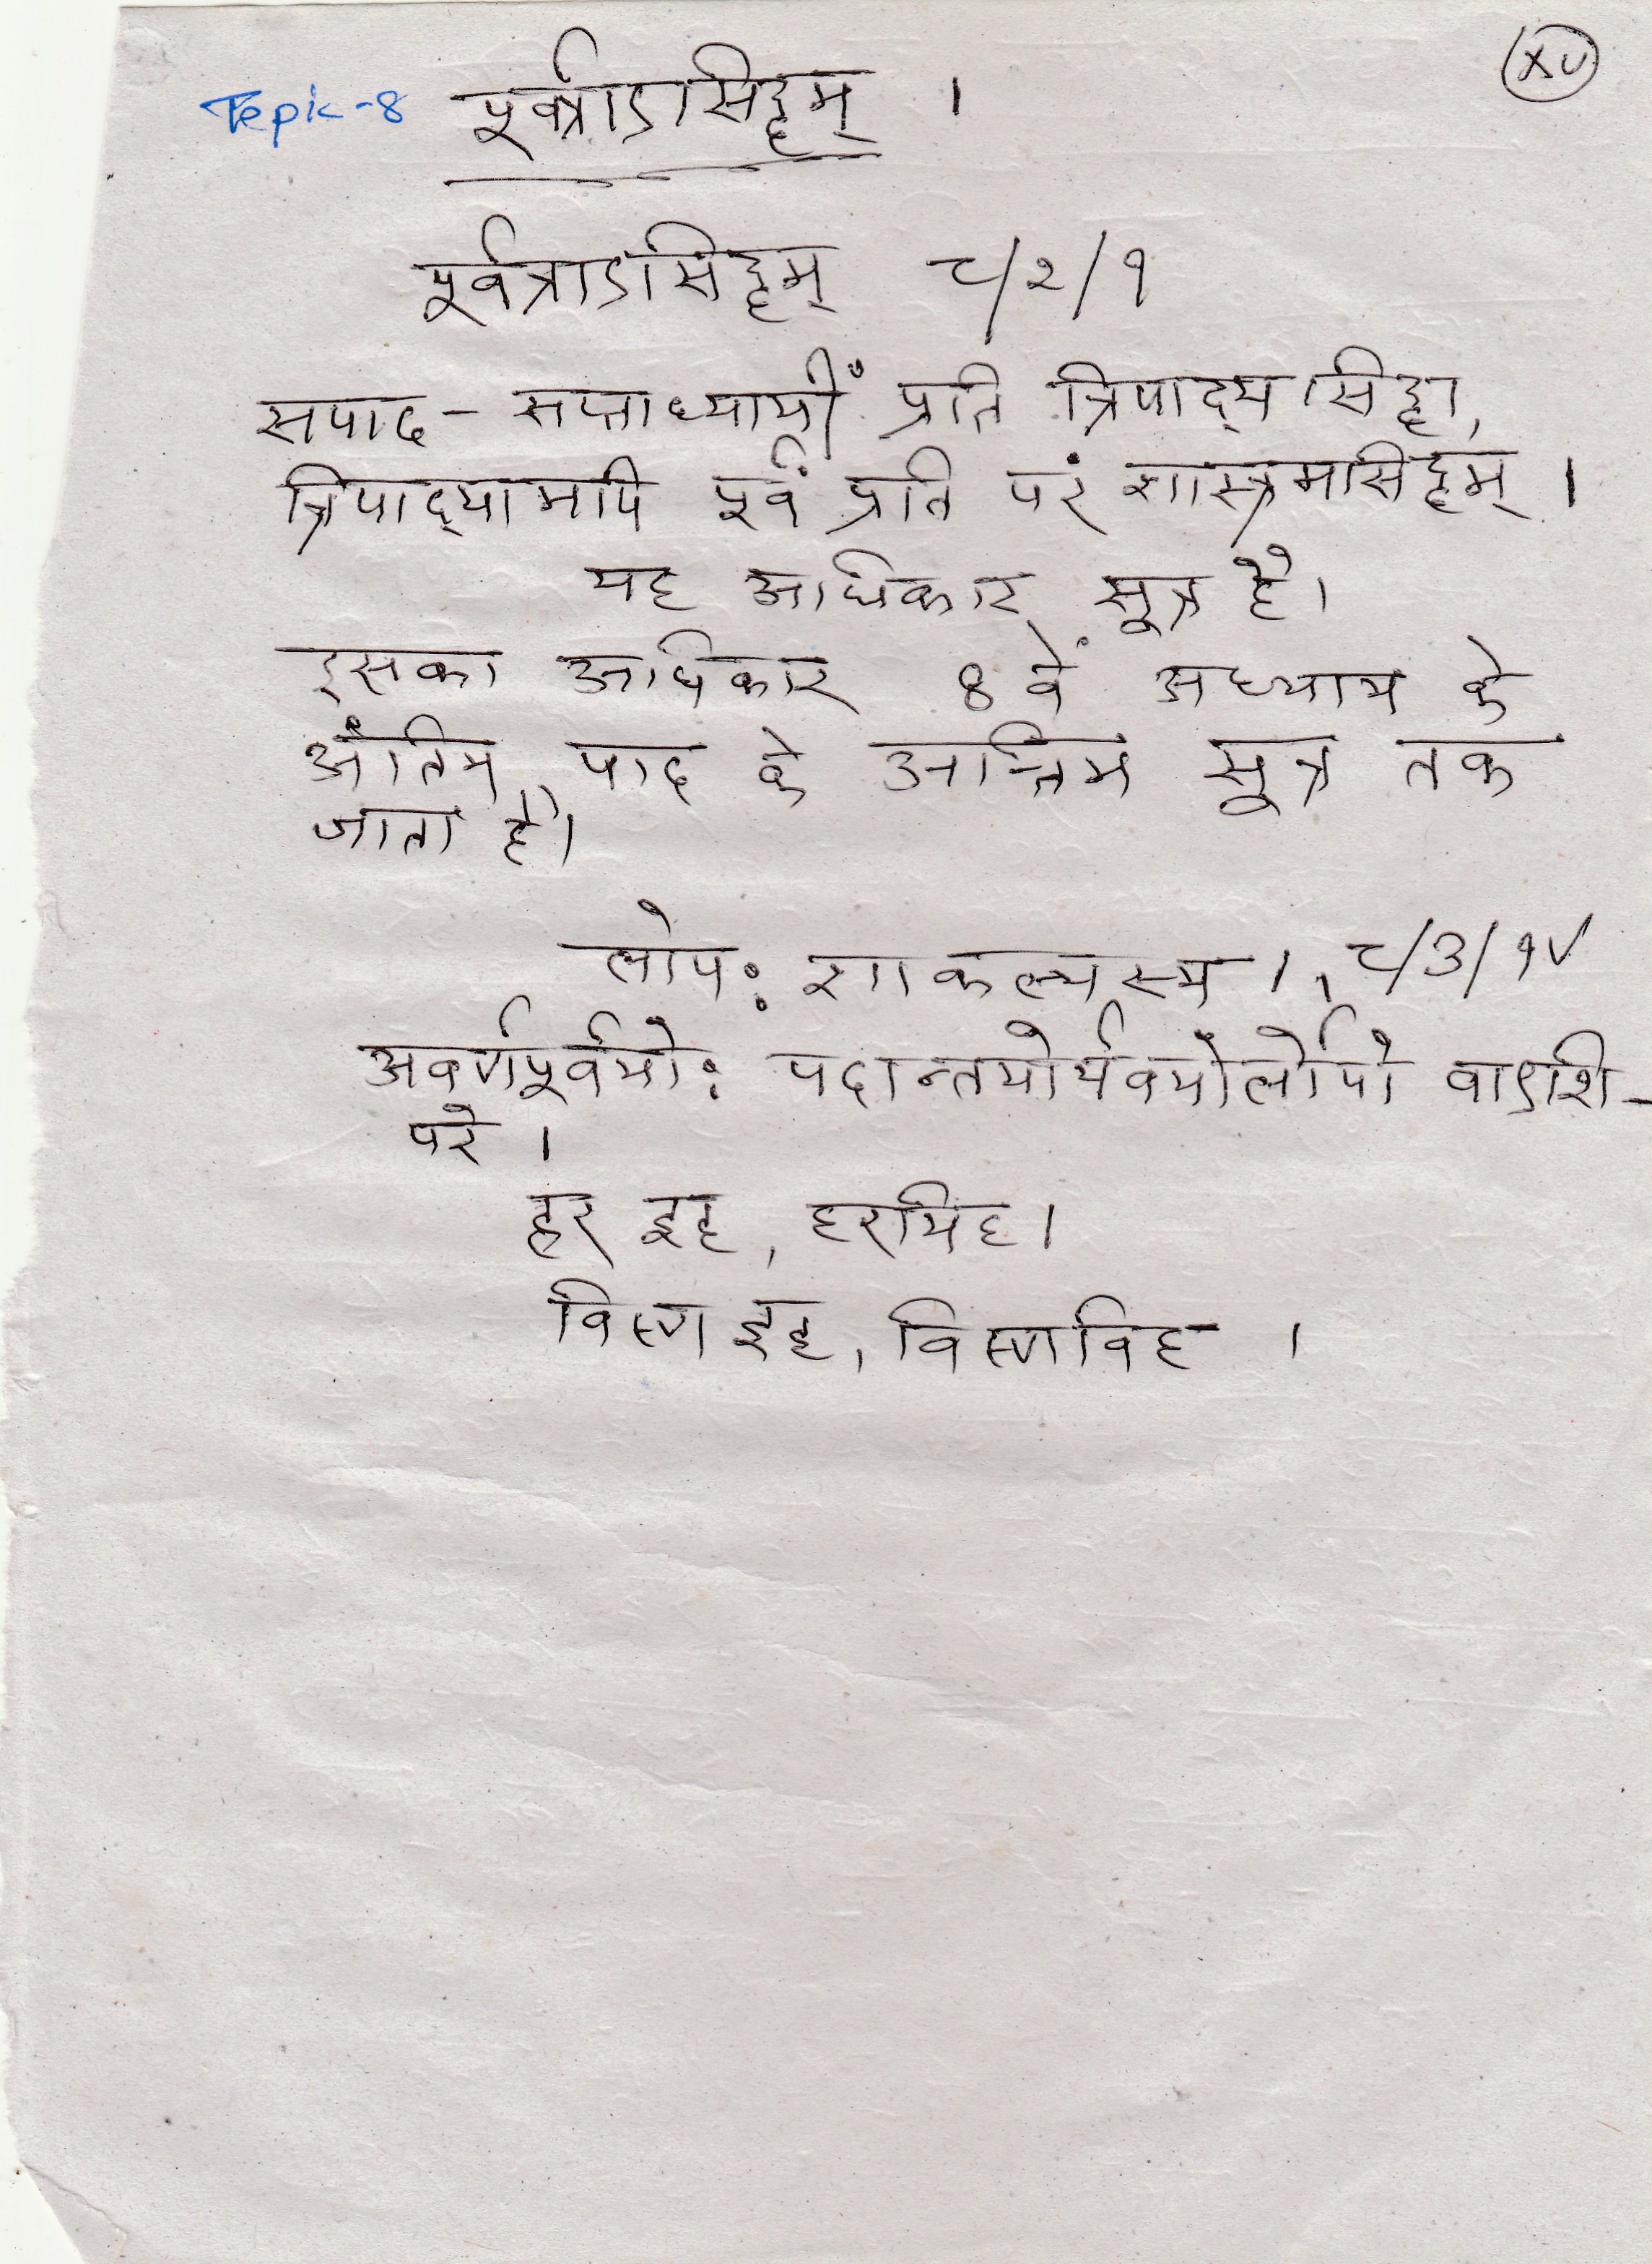 XV
Topic-8 पूर्वत्राऽसिद्धम् ।
पूर्वत्राऽसिद्धम् ८/२/१
सपाद - सप्ताध्यायीं प्रति त्रिपाद्यसिद्धा,
त्रिपाद्यामपि पूर्वं प्रति परं शास्त्रमसिद्धम् ।
यह अधिकार सूत्र है।
इसका अधिकार 8 वें अध्याय के
अंतिम पाद के अन्तिम सूत्र तक
जाता है।
लोपः शाकल्यस्य ।, ८/3/१९
अवर्णपूर्वयोः पदान्तयोर्यवयोर्लोपो वाऽशि-
परे ।
हर इह, हरयिह।
विष्ण इह, विष्णविह ।